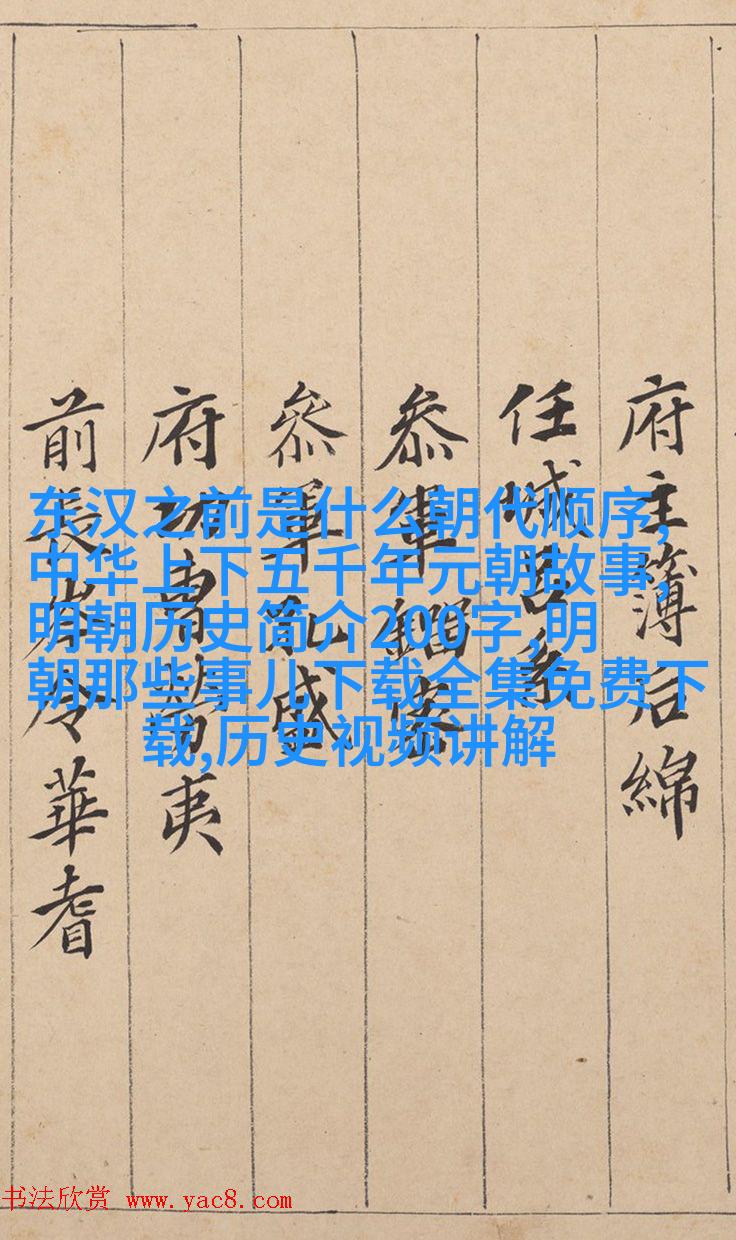 府主簿后綿
任城吕系
叅軍劉密
叅軍孔盛
府功曹勞夷
前長岑令華耆
东汉之前是什么朝代顺序,
中华上下五千年元朝故事,
明朝历史简介200字,明
朝那些事儿下载全集免费下
载,历史视频讲解
书法欣赏 www.yac8.com